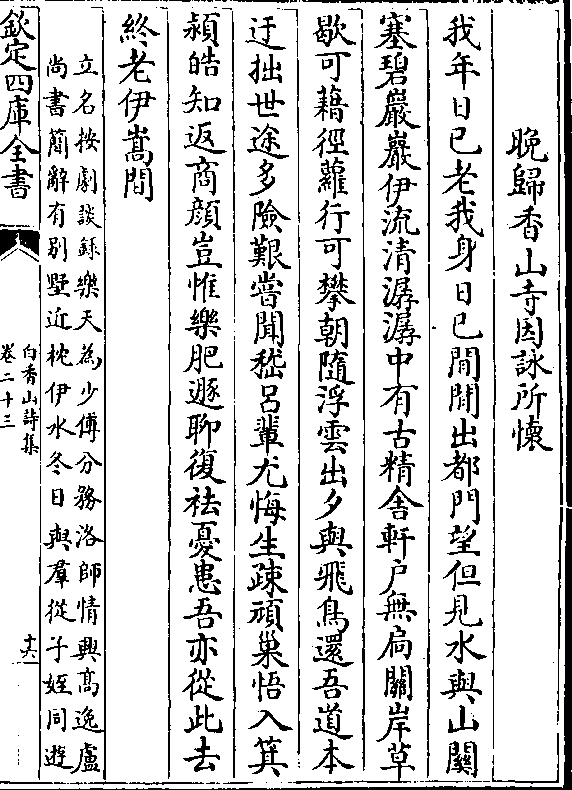 晩歸香山寺因詠所懷
我年日已老我身日已閒閒出都門望但見水與山闗
塞碧巖巖伊流清潺潺中有古精舍軒户無扃關岸草
歇可藉徑蘿行可攀朝隨浮雲出夕與飛鳥還吾道本
迂拙世途多險艱嘗聞嵇呂輩尤悔生疎頑巢悟入箕
潁皓知返商顔豈惟樂肥遯聊復袪憂患吾亦從此去
終老伊嵩間
立名按劇談録樂天為少傅分務洛師情興髙逸盧
尚書簡辭有别墅近枕伊水冬日與羣從子姪同遊
欽定四庫全書
白香山詩集
卷二十三
十六